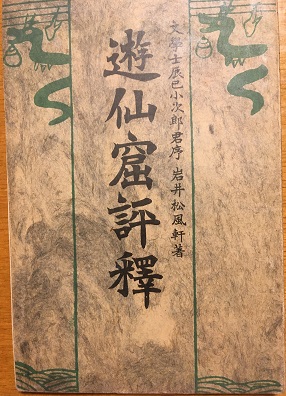 文學士辰巳小次郎君序 岩井松風軒著
遊仙窟評釋